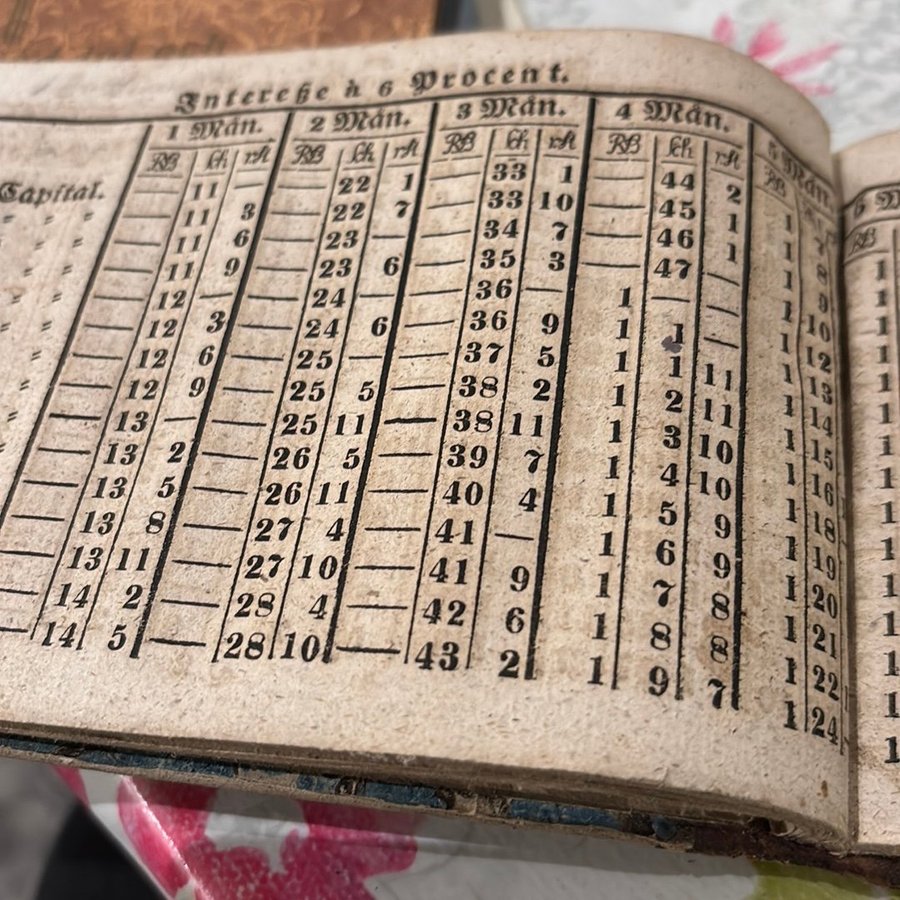 Intereße à 6 Procent.
Capital. 1 Mån. 2 Mån. 3 Mån. 4 Mån. 5 Mån. 6 M
RB ſch rst RB ſch rst RB ſch rst RB ſch rst RB RB
— 11 — — 22 1 — 33 1 — 44 2 1 7 1
— 11 3 — 22 7 — 33 10 — 45 1 1 8 1
— 11 6 — 23 — — 34 7 — 46 1 1 9 1
— 11 9 — 23 6 — 35 3 — 47 — 1 10 1
— 12 — — 24 — — 36 — 1 — — 1 12 1
— 12 3 — 24 6 — 36 9 1 1 — 1 13 1
— 12 6 — 25 — — 37 5 1 1 11 1 14 1
— 12 9 — 25 5 — 38 2 1 2 11 1 15 1
— 13 — — 25 11 — 38 11 1 3 10 1 16 1
— 13 2 — 26 5 — 39 7 1 4 10 1 18 1
— 13 5 — 26 11 — 40 4 1 5 9 1 19 1
— 13 8 — 27 4 — 41 — 1 6 9 1 20 1
— 13 11 — 27 10 — 41 9 1 7 8 1 21 1
— 14 2 — 28 4 — 42 6 1 8 8 1 22 1
— 14 5 — 28 10 — 43 2 1 9 7 1 24 1